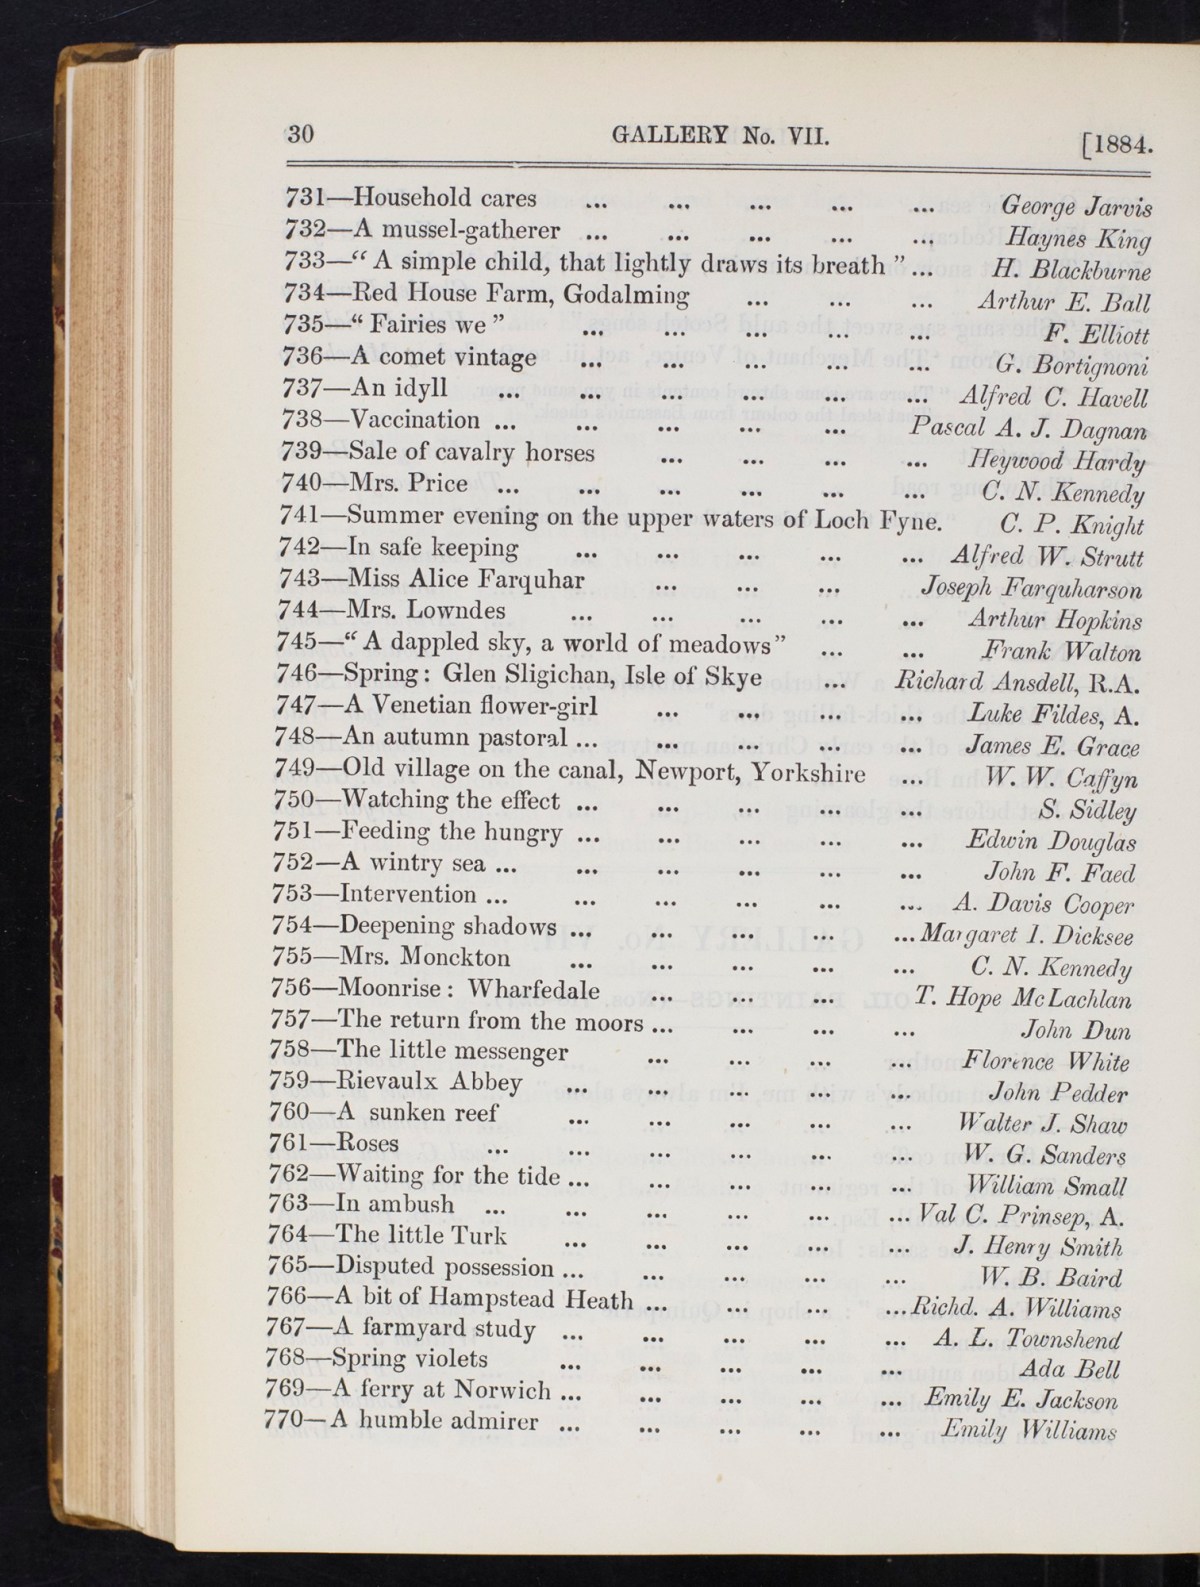 30 GALLERY No. VII. [1884.
731—Household cares ... ... ... ... ... George Jarvis
732—A mussel-gatherer ... ... ... ... ... Haynes King
733—“ A simple child, that lightly draws its breath ” ... H. Blackburne
734—Red House Farm, Godalming ... ... ... Arthur E. Ball
735—“ Fairies we ” ... ... ... ... ... F. Elliott
736—A comet vintage ... ... ... ... ... G. Bortignoni
737—An idyll ... ... ... ... ... ... Alfred C. Havell
738—Vaccination ... ... ... ... ... Pascal A. J. Dagnan
739—Sale of cavalry horses ... ... ... ... Heywood Hardy
740—Mrs. Price ... ... ... ... ... ... C. N. Kennedy
741—Summer evening on the upper waters of Loch Fyne. C. P. Knight
742—In safe keeping ... ... ... ... ... Alfred W. Strutt
743—Miss Alice Farquhar ... ... ... Joseph Farquharson
744—Mrs. Lowndes ... ... ... ... ... Arthur Hopkins
745—“ A dappled sky, a world of meadows” ... ... Frank Walton
746—Spring: Glen Sligichan, Isle of Skye ... Richard Ansdell, R.A.
747—A Venetian flower-girl ... ... ... ... Luke Fildes, A.
748—An autumn pastoral ... ... ... ... ... James E. Grace
749—Old village on the canal, Newport, Yorkshire ... W. W. Caffyn
750—Watching the effect ... ... ... ... ... S. Sidley
751—Feeding the hungry ... ... ... ... ... Edwin Douglas
752—A wintry sea ... ... ... ... ... ... John F. Faed
753—Intervention ... ... ... ... ... ... A. Davis Cooper
754—Deepening shadows ... ... ... ... ... Margaret I. Dicksee
755—Mrs. Monckton ... ... ... ... ... C. N. Kennedy
756—Moonrise: Wharfedale ... ... ... T. Hope McLachlan
757—The return from the moors ... ... ... ... John Dun
758—The little messenger ... ... ... ... Florence White
759—Rievaulx Abbey ... ... ... ... ... John Pedder
760—A sunken reef ... ... ... ... ... Walter J. Shaw
761—Roses ... ... ... ... ... ... W. G. Sanders
762—Waiting for the tide ... ... ... ... ... William Small
763—In ambush ... ... ... ... ... ... Val C. Prinsep, A.
764—The little Turk ... ... ... ... ... J. Henry Smith
765—Disputed possession ... ... ... ... ... W. B. Baird
766—A bit of Hampstead Heath ... ... ... ... Richd. A. Williams
767—A farmyard study ... ... ... ... ... A. L. Townshend
768—Spring violets ... ... ... ... ... Ada Bell
769—A ferry at Norwich ... ... ... ... ... Emily E. Jackson
770—A humble admirer ... ... ... ... ... Emily Williams